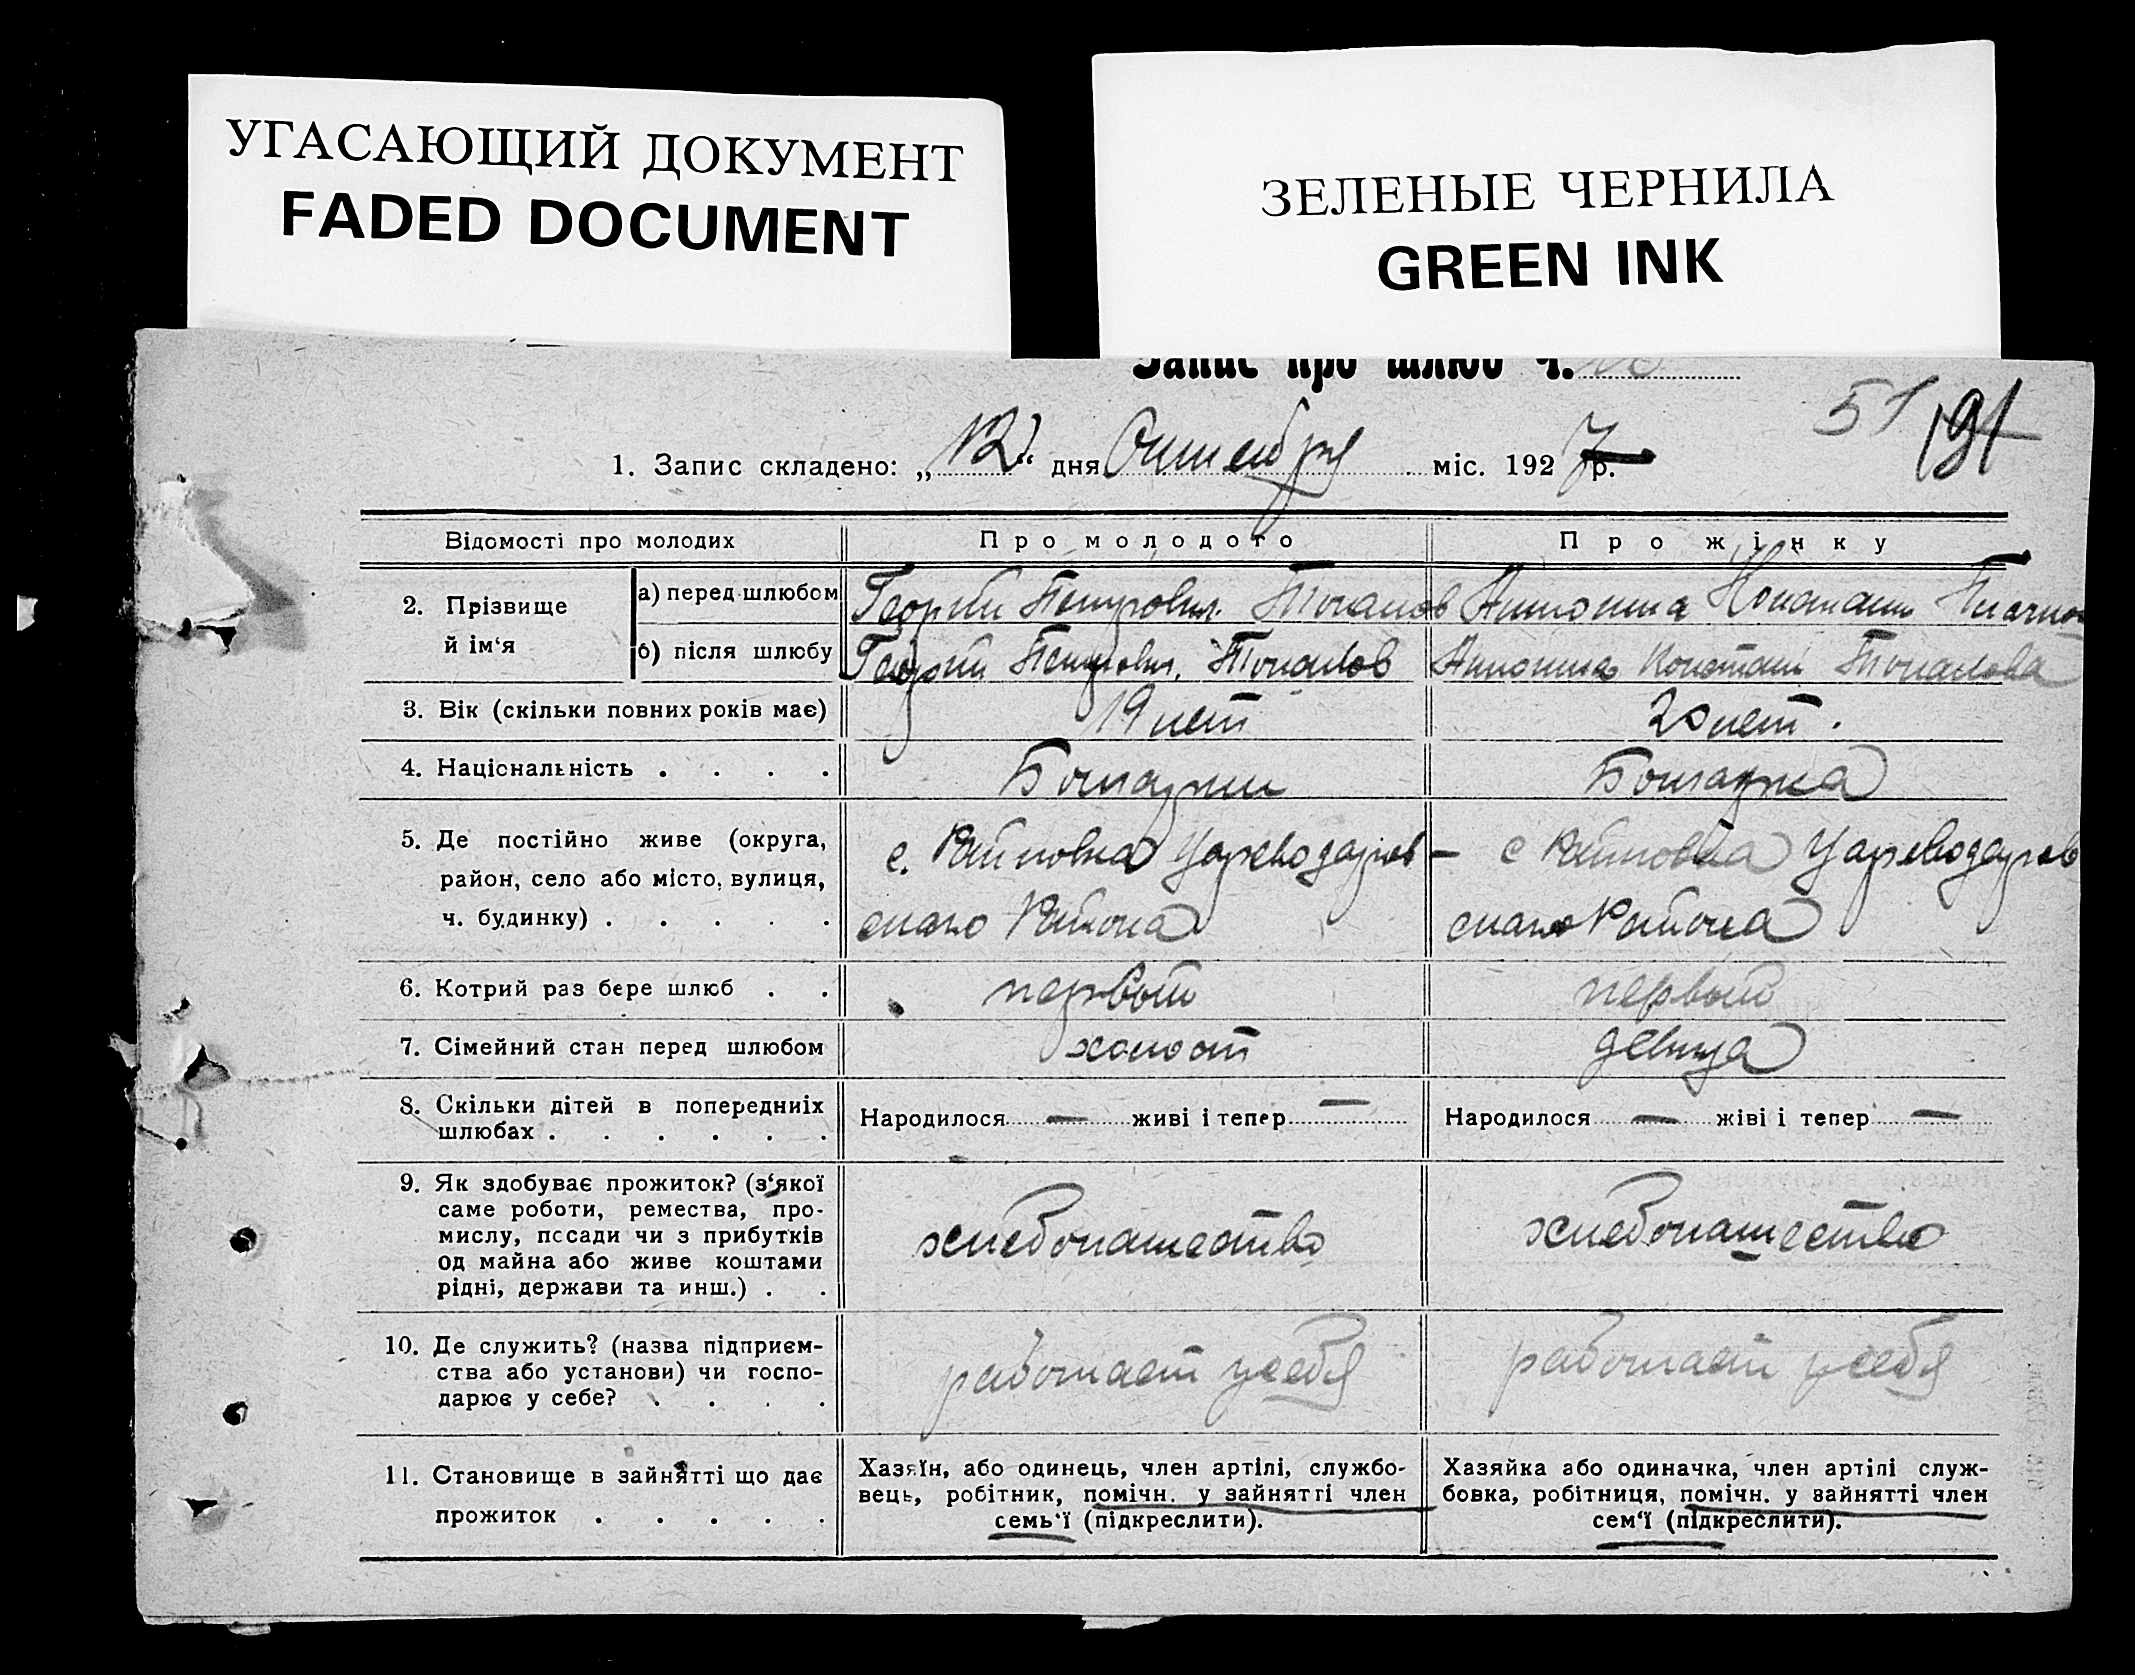 УГАСАЮЩИЙ ДОКУМЕНТ
FADED DOCUMENT
ЗЕЛЕНЫЕ ЧЕРНИЛА
GREEN INK
Запис про шлюб ч.
51 191
1. Запис складено: „12“ дня Октября міс. 1927 р.
Відомості про молодих Про молодого Про жінку
2. Прізвище й ім‘я
а) перед шлюбом Георгий Петрович. Топалов
б) після шлюбу Георгий Петрович. Топалов Топалова
3. Вік (скільки повних років має) 19 лет 20 лет.
4. Національність . . . . Болгарин Болгарка
5. Де постійно живе (округа, с. Райновка Цареводаров- с Райновка Цареводаров
район, село або місто, вулиця, скаго Района скаго Района
ч. будинку) . . . . .
6. Котрий раз бере шлюб . . первый первый
7. Сімейний стан перед шлюбом холост девица
8. Скільки дітей в попередниіх Народилося — живі і тепер — Народилося — жіві і тепер —
шлюбах . . . . . .
9. Як здобуває прожиток? (з‘якої
саме роботи, ремества, про-
мислу, посади чи з прибутків хлебопашество хлебопашество
од майна або живе коштами
рідні, держави та инш.) . .
10. Де служить? (назва підприєм-
ства або установи) чи госпо- работает у себя работает у себя
дарює у себе? . . . .
11. Становище в зайнятті що дає
прожиток . . . . .
Хазяїн, або одинець, член артілі, службо-
вець, робітник, помічн. у зайнятті член
семь‘ї (підкреслити).
Хазяйка або одиначка, член артілі служ-
бовка, робітниця, помічн. у зайнятті член
сем‘ї (підкреслити).